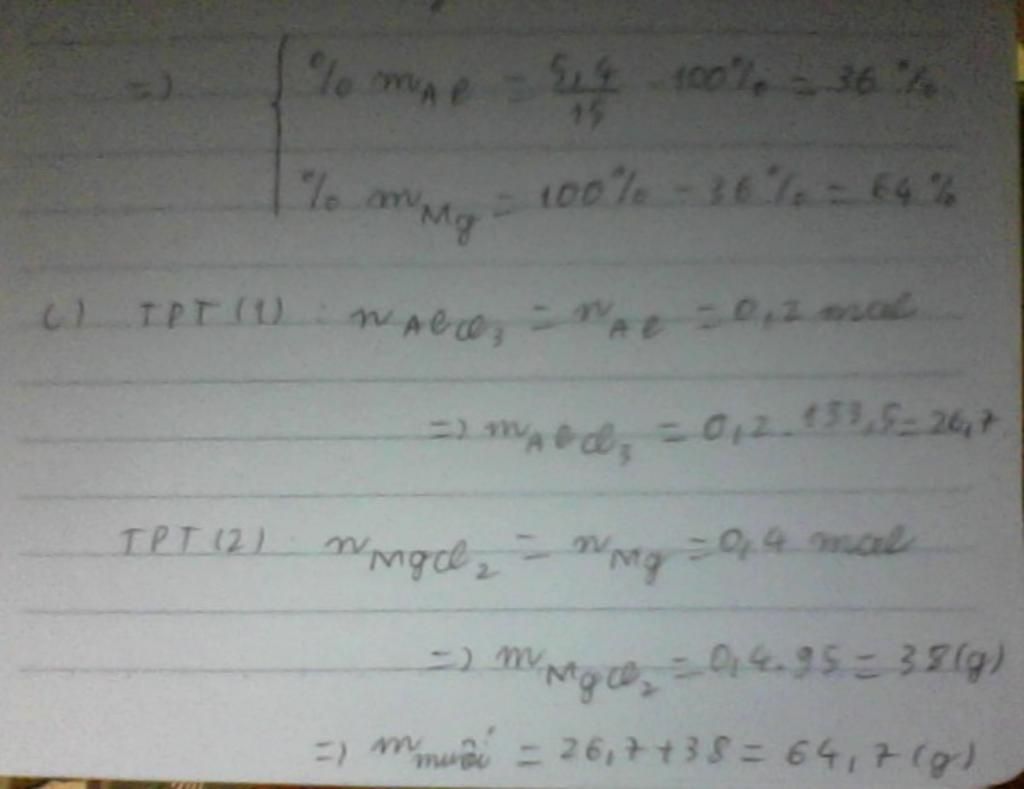 => { % mAl = 5,4/15 . 100% = 36%
% mMg = 100% - 36% = 64%
c) TPT (1) : nAlCl3 = nAl = 0,2 mol
=> mAlCl3 = 0,2 . 133,5 = 26,7
TPT (2) : nMgCl2 = nMg = 0,4 mol
=> mMgCl2 = 0,4 . 95 = 38 (g)
=> mmuối = 26,7 + 38 = 64,7 (g)